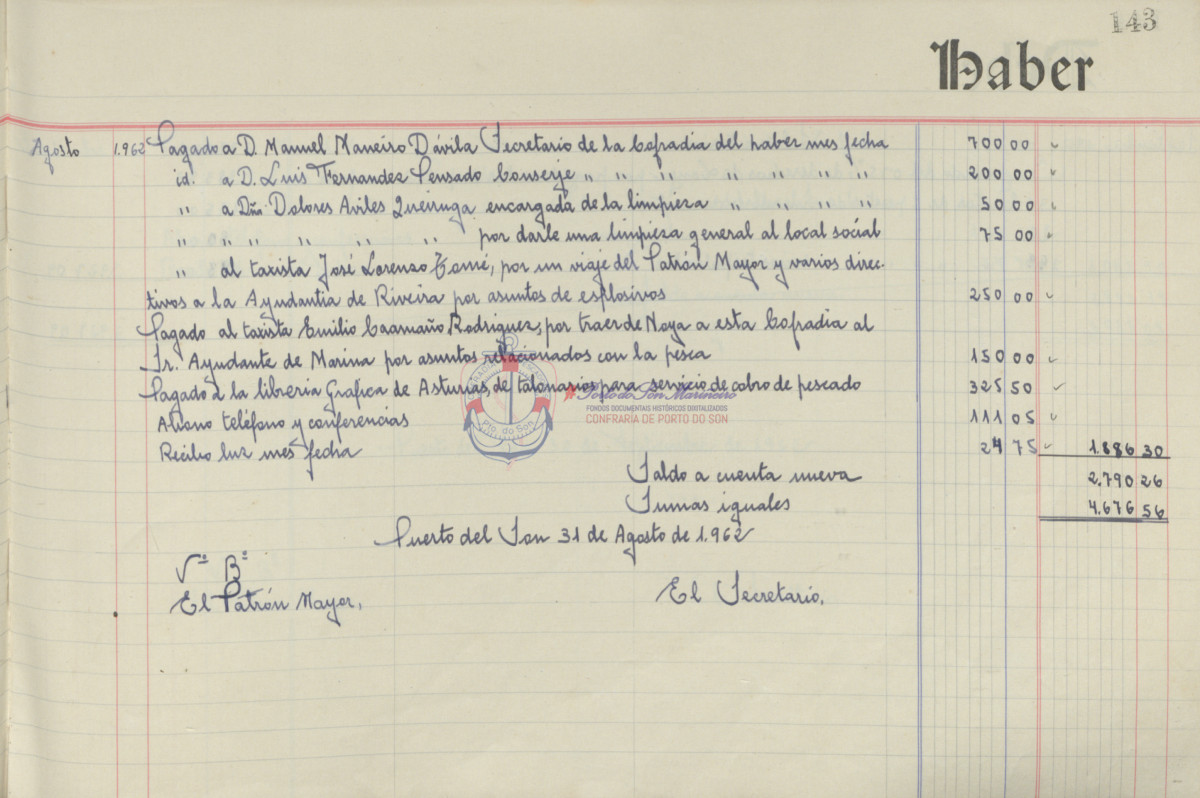 143
Haber
Agosto 1.962 Pagado a D. Manuel Maneiro Dávila Secretario de la Cofradia del haber mes fecha 700 00
id. a D. Luis Fernandez Pensado Conserje " " " " " " " 200 00
" a Dña. Dolores Aviles Queiruga encargada de la limpieza " " " " 50 00
" " " " " " por darle una limpieza general al local social 75 00
" al taxista José Lorenzo Tomé, por un viaje del Patrón Mayor y varios direc-
tivos a la Ayudantia de Riveira por asuntos de esplosivos 250 00
Pagado al taxista Emilio Caamaño Rodriguez, por traer de Noya a esta Cofradia al
Sr. Ayudante de Marina por asuntos relacionados con la pesca 150 00
Pagado a la libreria Grafica de Asturias, de talonarios para servicio de cobro de pescado 325 50
Abono teléfono y conferencias 111 05
Recibo luz mes fecha 24 75 1.886 30
Saldo a cuenta nueva 2.790 26
Sumas iguales 4.676 56
Puerto del Son 31 de Agosto de 1.962
Vº Bº
El Patrón Mayor,
El Secretario,
Pto. do Son
#Porto do Son Mariñeiro
FONDOS DOCUMENTAIS HISTÓRICOS DIXITALIZADOS
CONFRARÍA DE PORTO DO SON